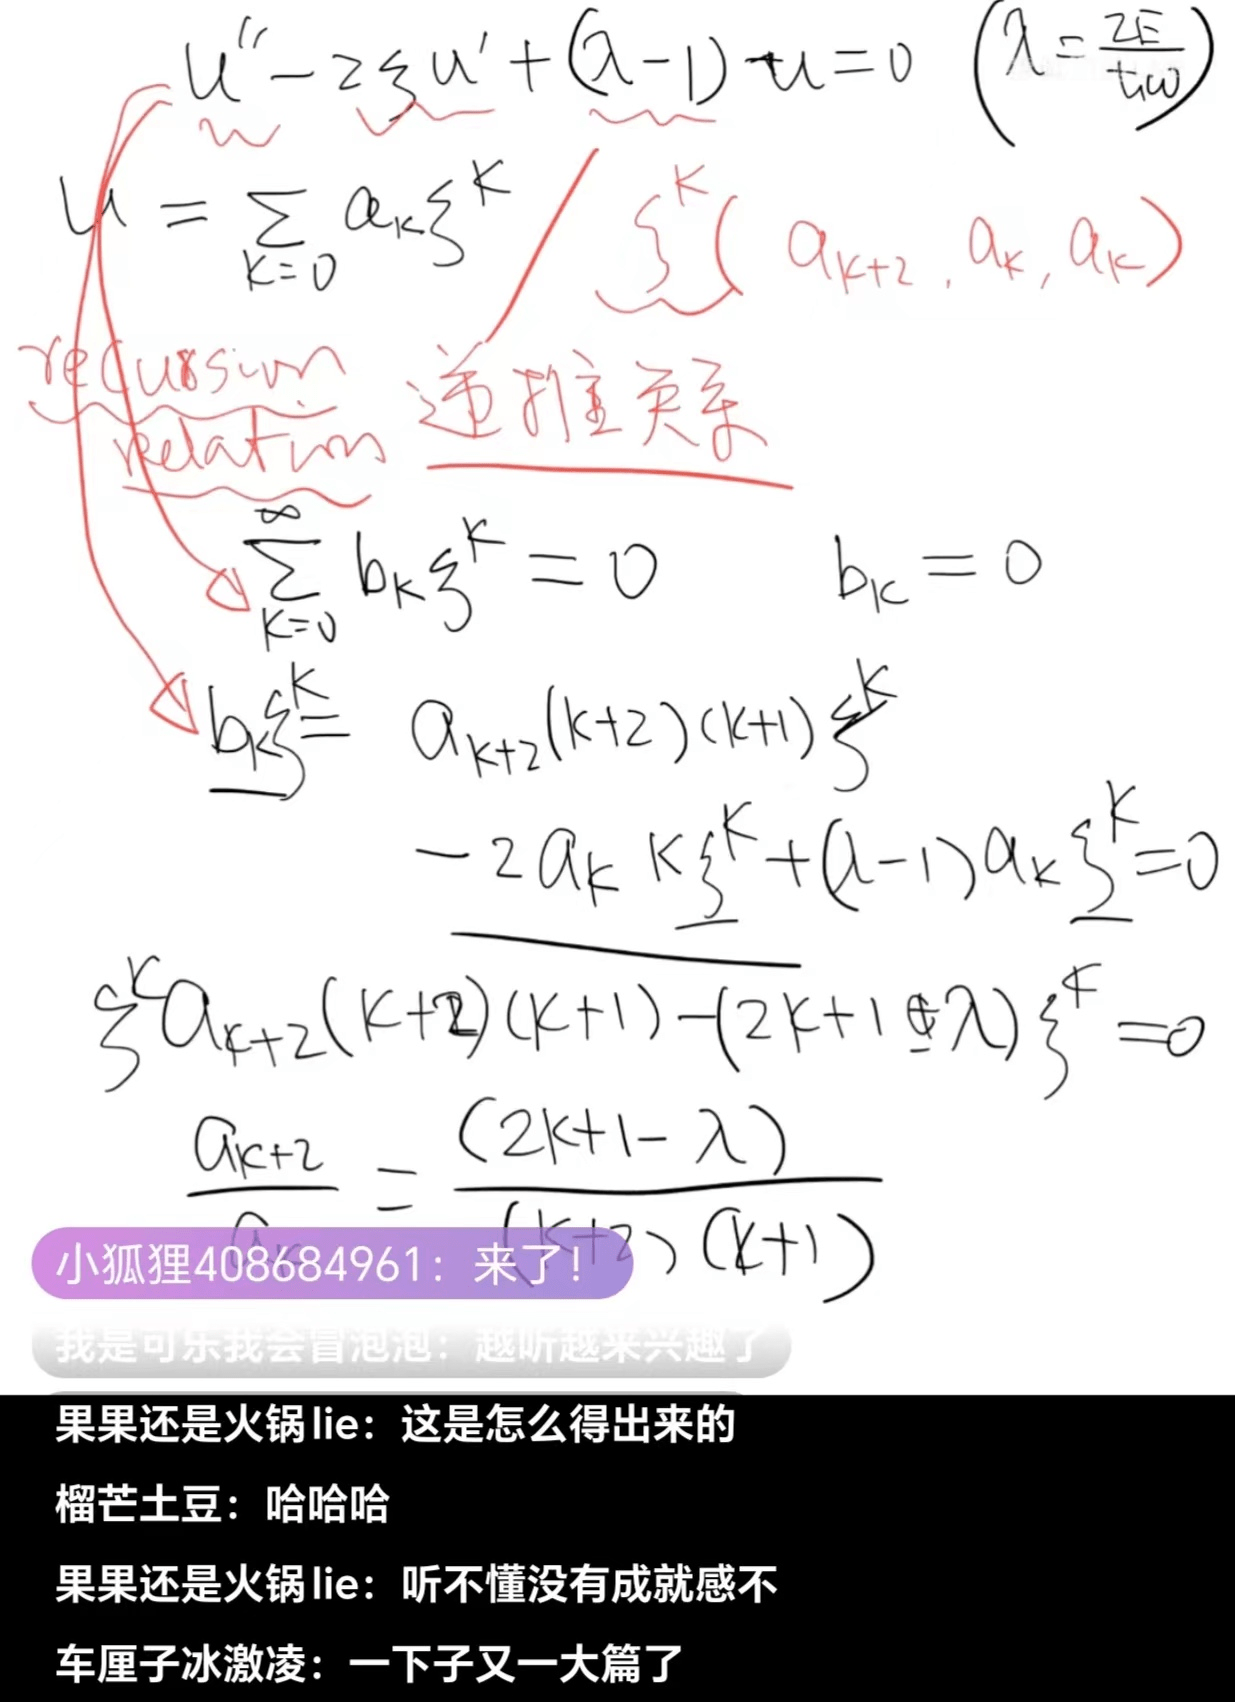 u'' - 2ξu' + (λ-1)u = 0 (λ = 2E/ħω)
u = ∑_{k=0} a_k ξ^k
ξ^k ( a_{k+2}, a_k, a_k )
recursion 递推关系
relation
∑_{k=0}^{∞} b_k ξ^k = 0 b_k = 0
b_k ξ^k = a_{k+2}(k+2)(k+1) ξ^k
- 2 a_k k ξ^k + (λ-1) a_k ξ^k = 0
ξ^k a_{k+2}(k+2)(k+1) - (2k+1-λ) ξ^k = 0
a_{k+2}/a_k = (2k+1-λ)/(k+2)(k+1)
小狐狸408684961：来了！
我是可乐我会冒泡泡：越听越来兴趣了
果果还是火锅lie：这是怎么得出来的
榴芒土豆：哈哈哈
果果还是火锅lie：听不懂没有成就感不
车厘子冰激凌：一下子又一大篇了